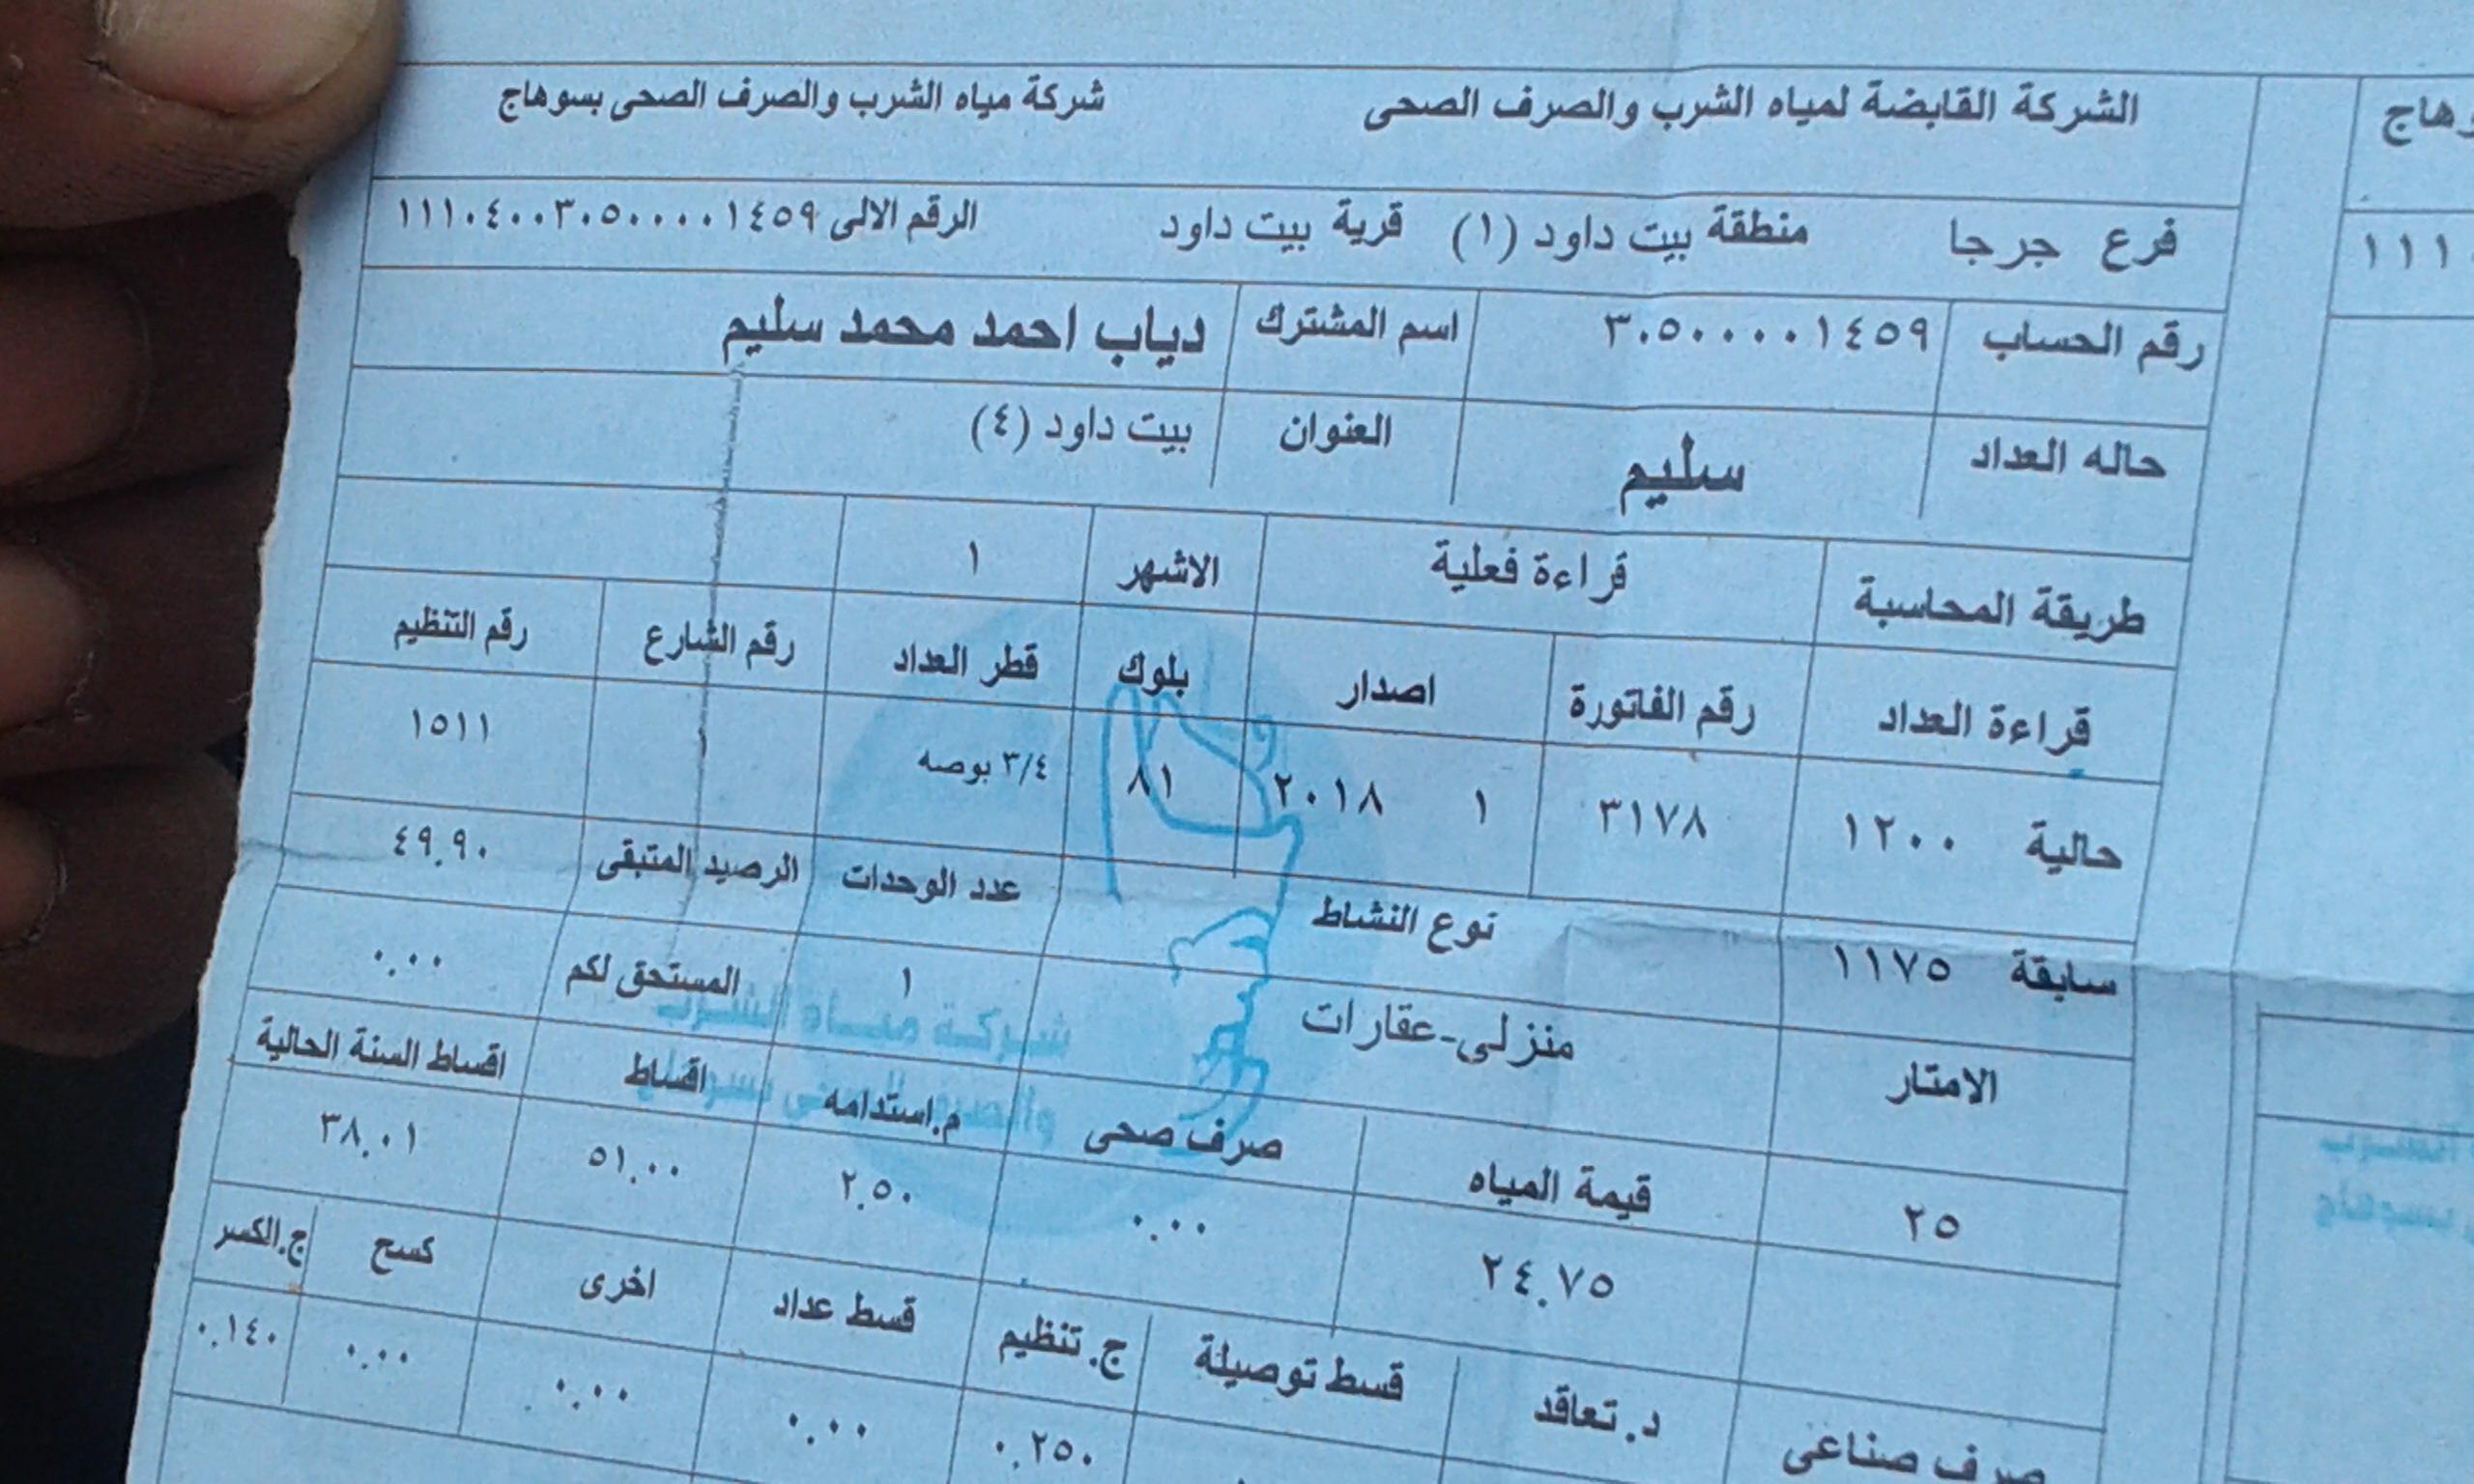 الشركة القابضة لمياه الشرب والصرف الصحى شركة مياه الشرب والصرف الصحى بسوهاج
فرع جرجا منطقة بيت داود (١) قرية بيت داود الرقم الالى ١١١٠٤٠٠٣٠٥٠٠٠٠٠١٤٥٩
رقم الحساب ٣٠٥٠٠٠٠٠١٤٥٩ اسم المشترك دياب احمد محمد سليم
حاله العداد سليم العنوان بيت داود (٤)
طريقة المحاسبة قراءة فعلية الاشهر ١
قراءة العداد رقم الفاتورة اصدار بلوك قطر العداد رقم الشارع رقم التنظيم
حالية ١٢٠٠ ٣١٧٨ ١ ٢٠١٨ ٨١ ٣/٤ بوصه ١ ١٥١١
سابقة ١١٧٥ نوع النشاط عدد الوحدات الرصيد المتبقى ٤٩.٩٠
الامتار منزلى-عقارات ١ المستحق لكم ٠.٠٠
٢٥ قيمة المياه صرف صحى م.استدامه اقساط اقساط السنة الحالية
٢٤.٧٥ ٠.٠٠ ٢.٥٠ ٥١.٠٠ ٣٨.٠١
صرف صناعى د.تعاقد قسط توصيلة ج.تنظيم قسط عداد اخرى كسح ج.الكسر
٠.٢٥٠ ٠.٠٠ ٠.٠٠ ٠.٠٠ ٠.١٤٠
شركة مياه الشرب